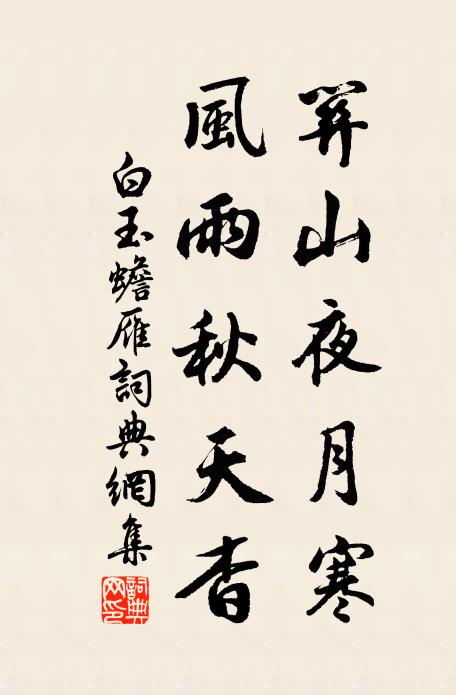 關山夜月寒
風雨秋天杳
白玉蟾雁詞典網集
詞典网印